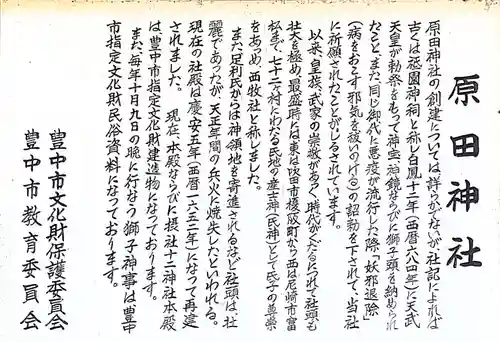 原田神社
原田神社の創建については詳らかでないが社記によれば
古くは祇園神祠と称し白鳳十二年(西暦六八四年)に天武
天皇が勅祭をもって神宝、神鏡ならびに獅子頭を納められ
たことまた同じ御代に悪疫が流行した際「妖邪退除」
(病をおこす邪気を祓いのける)の詔勅を下されて、当社
に祈願されたことがしるされています。
以来、皇族、武家の崇敬があつく時代がくだるにつれて社頭も
壮大を極め、最盛時には東は吹田市榎阪町から西は尼崎市富
松まで、七十二ヶ村にわたる民地の産土神(氏神)として氏子の尊崇
をあつめ西牧社と称しました。
また足利氏からは神領地を寄進されるなど社頭は、壮
麗であったが、天正年間の兵火に焼失したといわれる。
現在の社殿は慶安五年(西暦一六五二年)になって再建
されました。 現在、本殿ならびに摂社十二神社本殿
は豊中市指定文化財建造物になっております。
また、毎年十月九日の晩に行なう獅子神事は豊中
市指定文化財民俗資料になっております。
豊中市文化財保護委員会
豊中市教育委員会